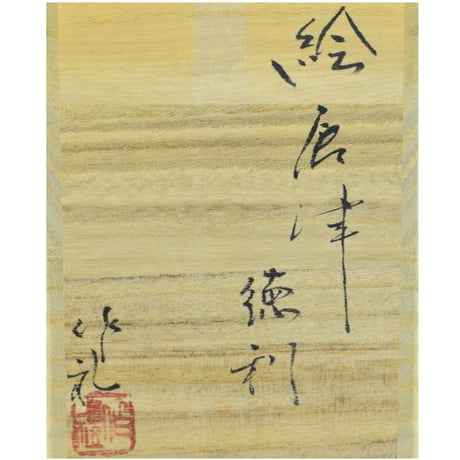 絵唐津
徳利
作礼